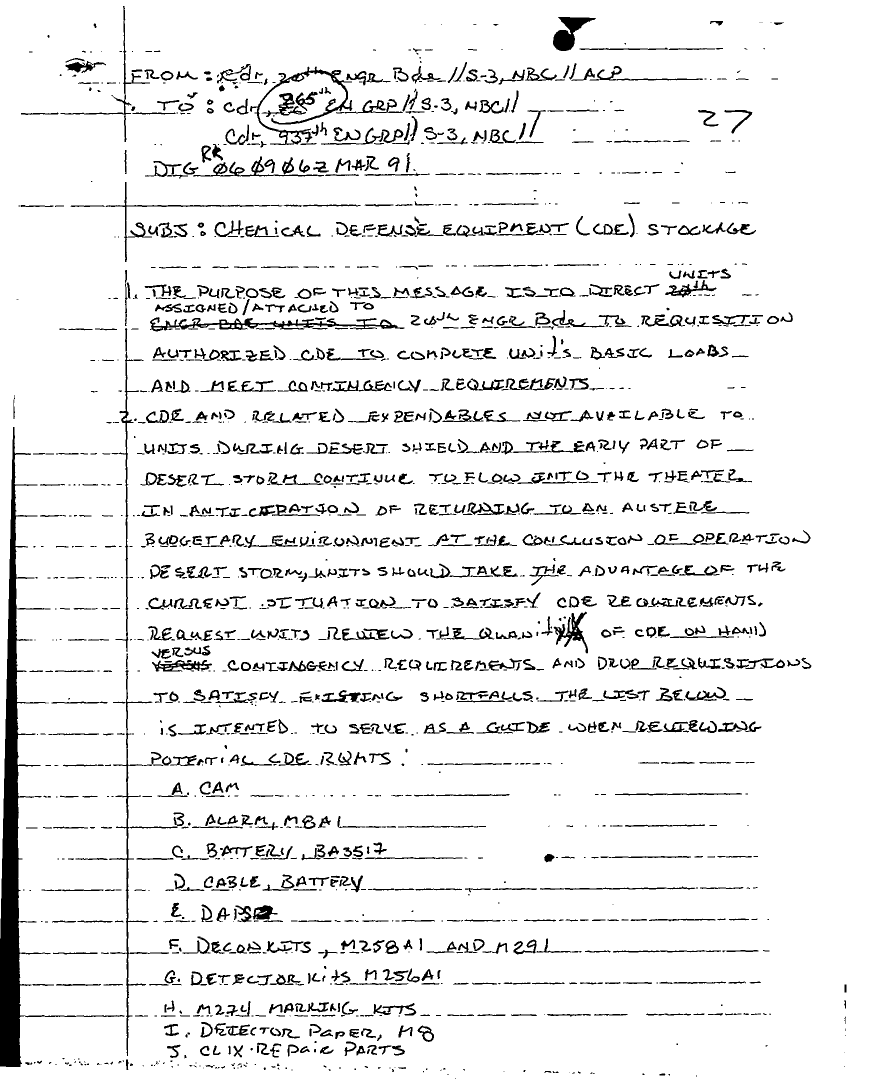 FROM: Cdr, 20th ENGR Bde //S-3, NBC// ACP
TO: Cdr, 265th EN GRP// S-3, NBC//
27
Cdr, 937th EN GRP// S-3, NBC//
RR
DTG 060906Z MAR 91
SUBJ: CHEMICAL DEFENSE EQUIPMENT (CDE) STOCKAGE
UNITS
1. THE PURPOSE OF THIS MESSAGE IS TO DIRECT 20th
ASSIGNED/ATTACHED TO
ENGR BDE UNITS TO 20th ENGR Bde TO REQUISITION
AUTHORIZED CDE TO COMPLETE UNit's BASIC LOADS
AND MEET CONTINGENCY REQUIREMENTS
2. CDE AND RELATED EXPENDABLES NOT AVAILABLE TO
UNITS DURING DESERT SHIELD AND THE EARLY PART OF
DESERT STORM CONTINUE TO FLOW INTO THE THEATER.
IN ANTICIPATION OF RETURNING TO AN AUSTERE
BUDGETARY ENVIRONMENT AT THE CONCLUSION OF OPERATION
DESERT STORM, UNITS SHOULD TAKE THE ADVANTAGE OF THE
CURRENT SITUATION TO SATISFY CDE REQUIREMENTS.
REQUEST UNITS REVIEW THE QUANtity OF CDE ON HAND
VERSUS
VERSUS CONTINGENCY REQUIREMENTS AND DROP REQUISITIONS
TO SATISFY EXISTING SHORTFALLS. THE LIST BELOW
iS INTENTED TO SERVE AS A GUIDE WHEN REVIEWING
POTENTIAL CDE RQMTS:
A. CAM
B. ALARM, M8A1
C. BATTERY, BA3517
D. CABLE, BATTERY
E. DAPS
F. DECON KITS, M258A1 AND M291
G. DETECTOR Kits M256A1
H. M274 MARKING KITS
I. DETECTOR PAPER, M8
J. CLIX REPAIR PARTS